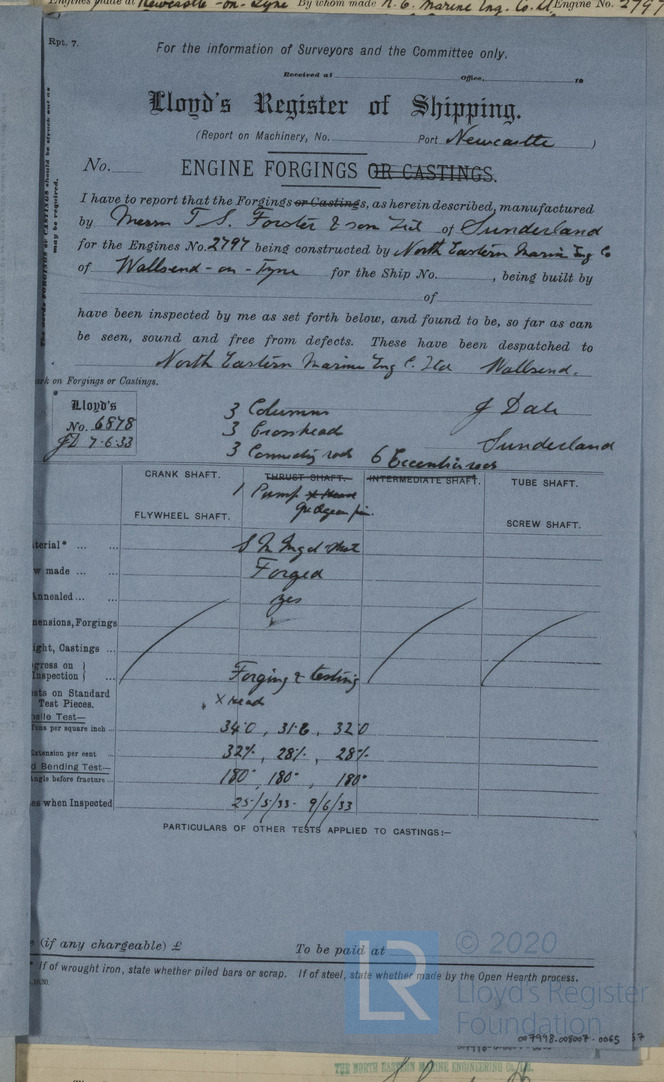 Engines made at Newcastle-on-Tyne By whom made N. E. Marine Eng. Co. Ld Engine No. 2797
Rpt. 7.
For the information of Surveyors and the Committee only.
Received at Office, 19
Lloyd's Register of Shipping.
(Report on Machinery, No. Port Newcastle )
No. ENGINE FORGINGS OR CASTINGS.
I have to report that the Forgings or Castings, as herein described, manufactured
by Messrs T. S. Forster & son Ltd of Sunderland
for the Engines No. 2797 being constructed by North Eastern Marine Eng Co
of Wallsend-on-Tyne for the Ship No. , being built by
of
have been inspected by me as set forth below, and found to be, so far as can
be seen, sound and free from defects. These have been despatched to
North Eastern Marine Eng C. Ltd Wallsend.
ark on Forgings or Castings.
Lloyd's
No. 6878
JD 7-6-33
3 Columns J Dale
3 Crosshead
3 Connecting rods 6 Eccentric rods Sunderland
CRANK SHAFT. THRUST SHAFT. INTERMEDIATE SHAFT. TUBE SHAFT.
1 Pump X Head
Gudgeon pin.
FLYWHEEL SHAFT. SCREW SHAFT.
terial* ... ... S M Ingot steel
w made ... ... Forged
Annealed ... ... yes
mensions, Forgings
ight, Castings ...
gress on } Inspection } ... Forging & testing
sts on Standard
Test Pieces. X Head
nsile Test—
Tons per square inch ... 34.0 , 31.6 , 32.0
Extension per cent 32% , 28% , 28%
d Bending Test—
Angle before fracture ... 180° , 180° , 180°
es when Inspected 25/5/33 - 9/6/33
PARTICULARS OF OTHER TESTS APPLIED TO CASTINGS:—
e (if any chargeable) £ To be paid at
* If of wrought iron, state whether piled bars or scrap. If of steel, state whether made by the Open Hearth process.
© 2020
LR
Lloyd's Register
Foundation
007998-008007-0065
THE NORTH EASTERN MARINE ENGINEERING CO. LTD.